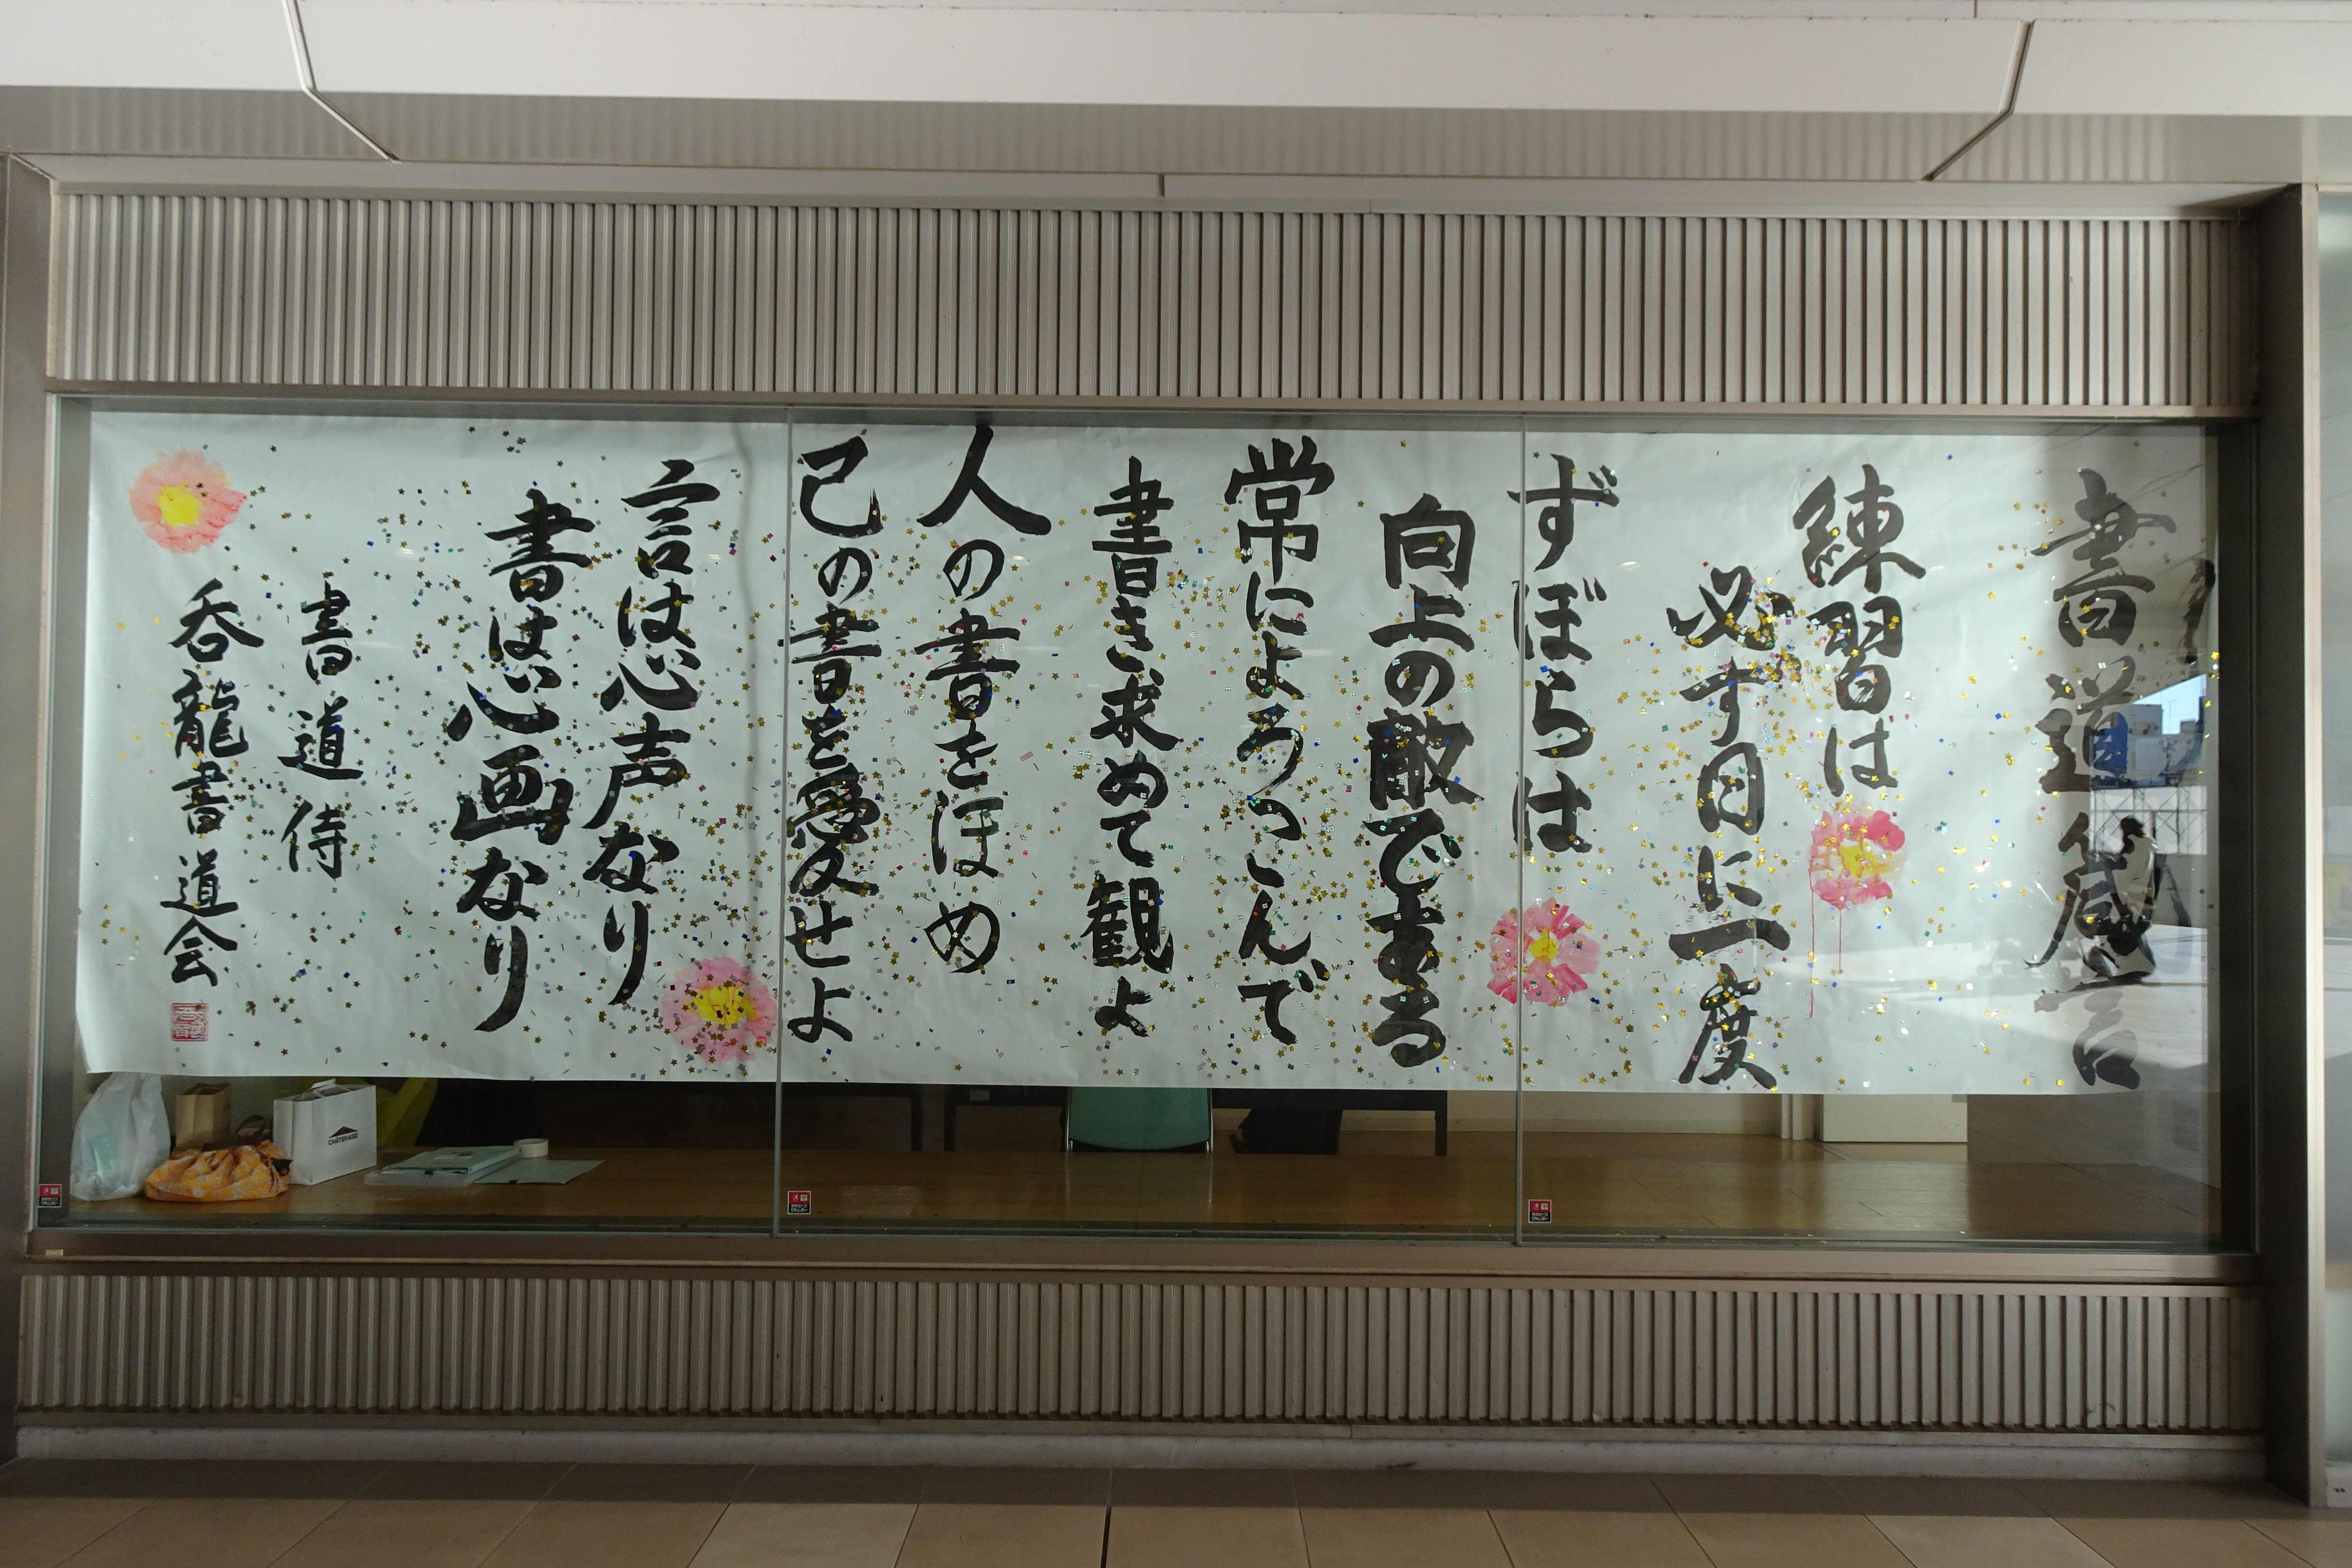 書道箴言
練習は
必ず日に一度
ずぼらは
向上の敵である
常によろこんで
書き求めて観よ
人の書をほめ
己の書を愛せよ
言は心声なり
書は心画なり
書道侍
呑龍書道会
CHATERAISE